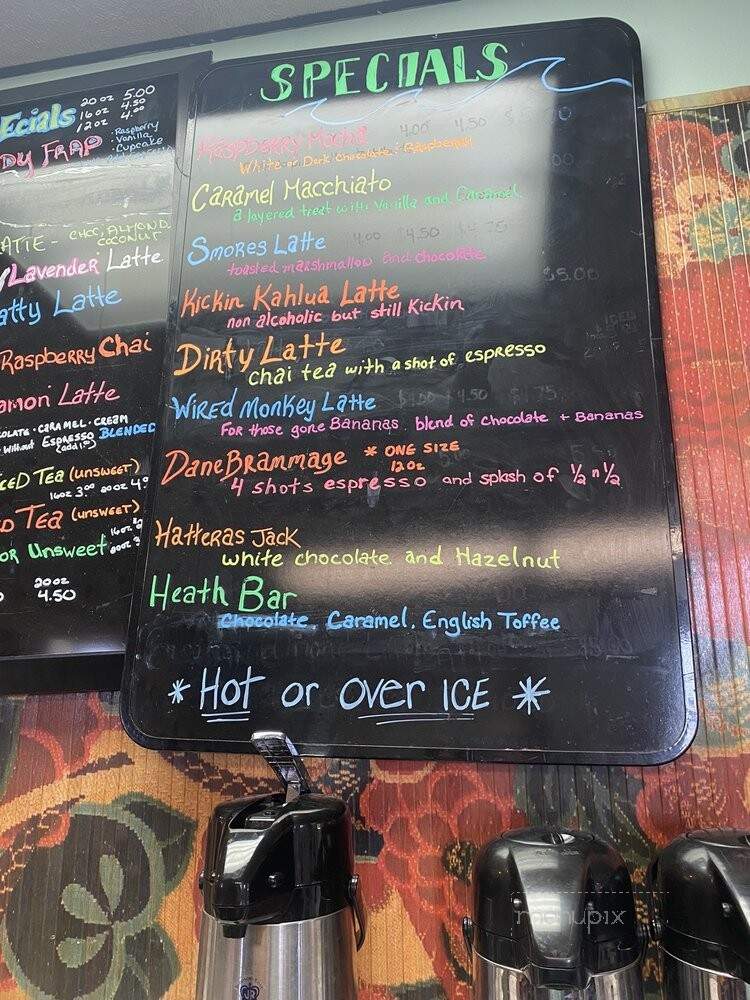 Ecials
20oz 5.00
16oz 4.50
12oz 4.00
DY FRAP
·Raspberry
·Vanilla
·Cupcake
ATTE - CHOC, ALMOND
COCONUT
Lavender Latte
atty Latte
Raspberry Chai
amon Latte
OLATE · CARAMEL · CREAM
Without Espresso BLENDED
(add 1.00)
CED TEA (UNSWEET)
16oz 3.00 20oz 4.
D TEA (UNSWEET)
16oz
OR Unsweet 20oz
20oz
4.50
SPECIALS
Raspberry Mocha 4.00 4.50
White or Dark Chocolate. Raspberry
Caramel Macchiato
a layered treat with Vanilla and Caramel
Smores Latte 4.00 $4.50 $4.75
toasted marshmallow and chocolate
$5.00
Kickin Kahlua Latte
non alcoholic but still Kickin
Dirty Latte
chai tea with a shot of espresso
Wired Monkey Latte
For those gone Bananas. blend of chocolate + Bananas
Dane Brammage * ONE SIZE
12oz
4 shots espresso and splash of ½ n ½
Hatteras Jack
white chocolate and Hazelnut
Heath Bar
Chocolate, Caramel, English Toffee
* Hot or Over ICE *
menupix